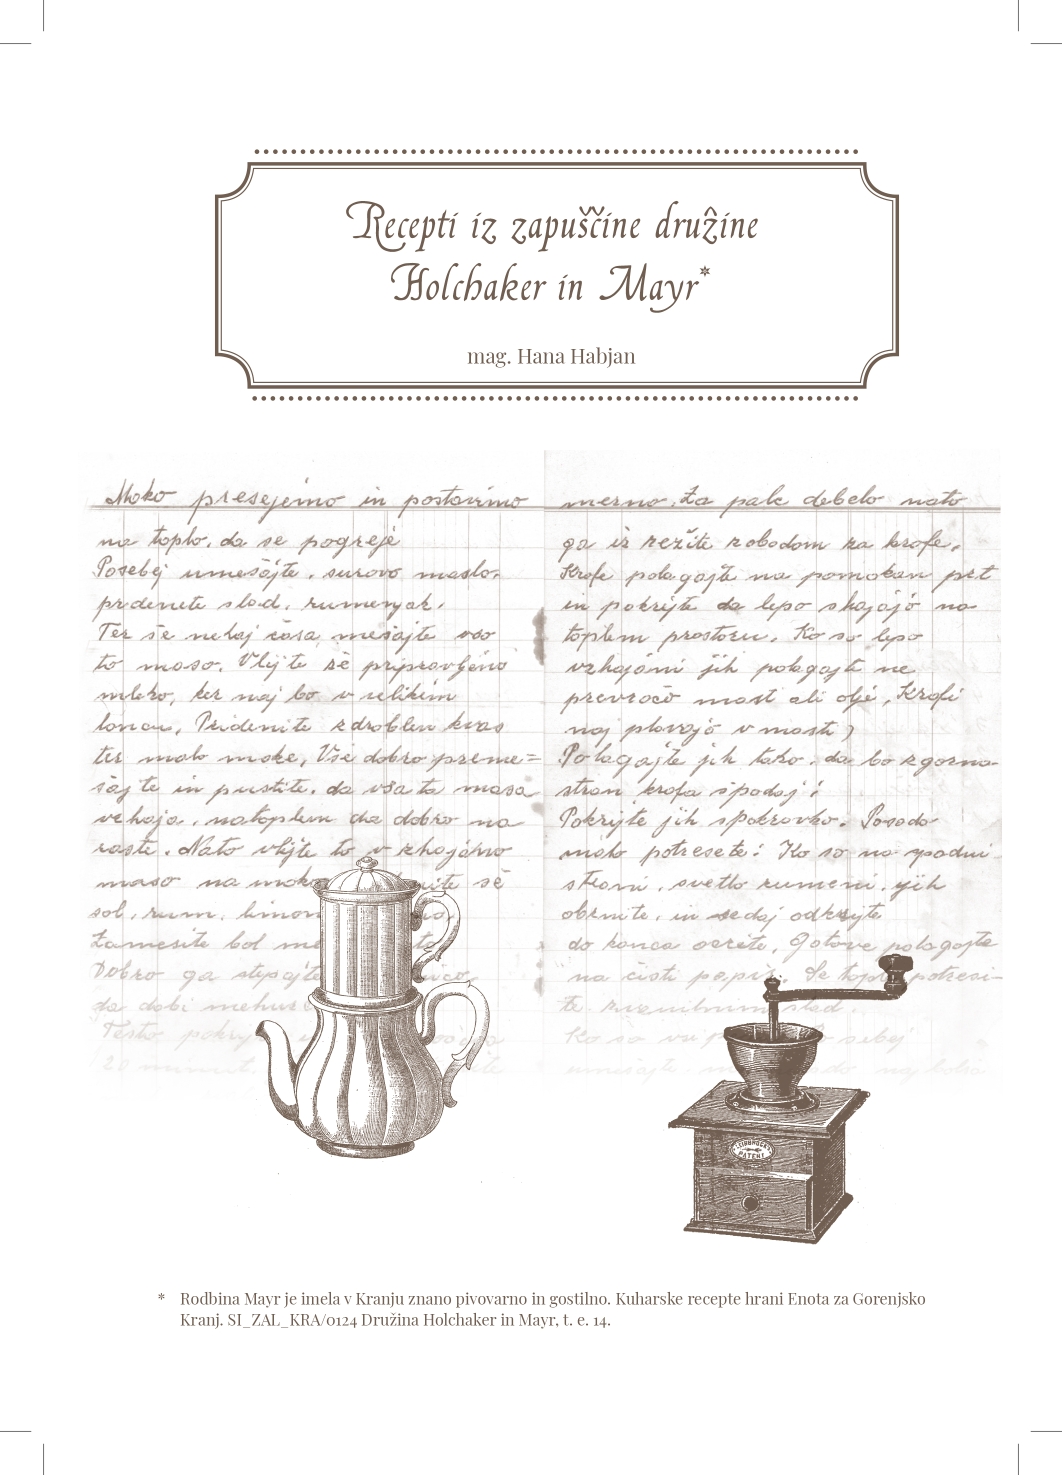 Recepti iz zapuščine družine
Holchaker in Mayr*
mag. Hana Habjan
Moko presejemo in postavimo
na toplo, da se pogreje
Posebej umešajte, surovo maslo,
pridenete slad, rumenjak,
Ter še nekaj časa mešajte vso
to maso. Vlijte še pripravljeno
mleko, ker naj bo v velikim
loncu, Pridenite zdroblen kvas
ter malo moke, Vse dobro preme=
šajte in pustite, da vsa ta masa
vzhaja, natoplem da dobro na
raste. Nato vlijte to vzhajano
maso na moko
sol, rum, limon
Zamesite bol
Dobro ga stepajte
da dobi mehur
Testo
20 minut,
merno. Za palc debelo nato
ga iz režite z obodom za krofe,
Krofe polagajte na pomokan prt
in pokrijte da lepo shajajo na
toplem prostoru, Ko so lepo
vzhajani jih polagajte ne
prevročo mast ali olje, Krofi
naj plavajo v masti)
Polagajte jih tako, da bo zgorna
stran krofa spodaj!
Pokrijte jih s pokrovko. Posodo
malo potresete! Ko so na spodni
strani, svetlo rumeni, jih
obrnite, in sedaj odkrijte
do konca ocrite, Gotove polagajte
na čisti papir. Še tople potresi-
te
Ko so
LEINBROCK'S
PATENT
* Rodbina Mayr je imela v Kranju znano pivovarno in gostilno. Kuharske recepte hrani Enota za Gorenjsko
Kranj. SI_ZAL_KRA/0124 Družina Holchaker in Mayr, t. e. 14.